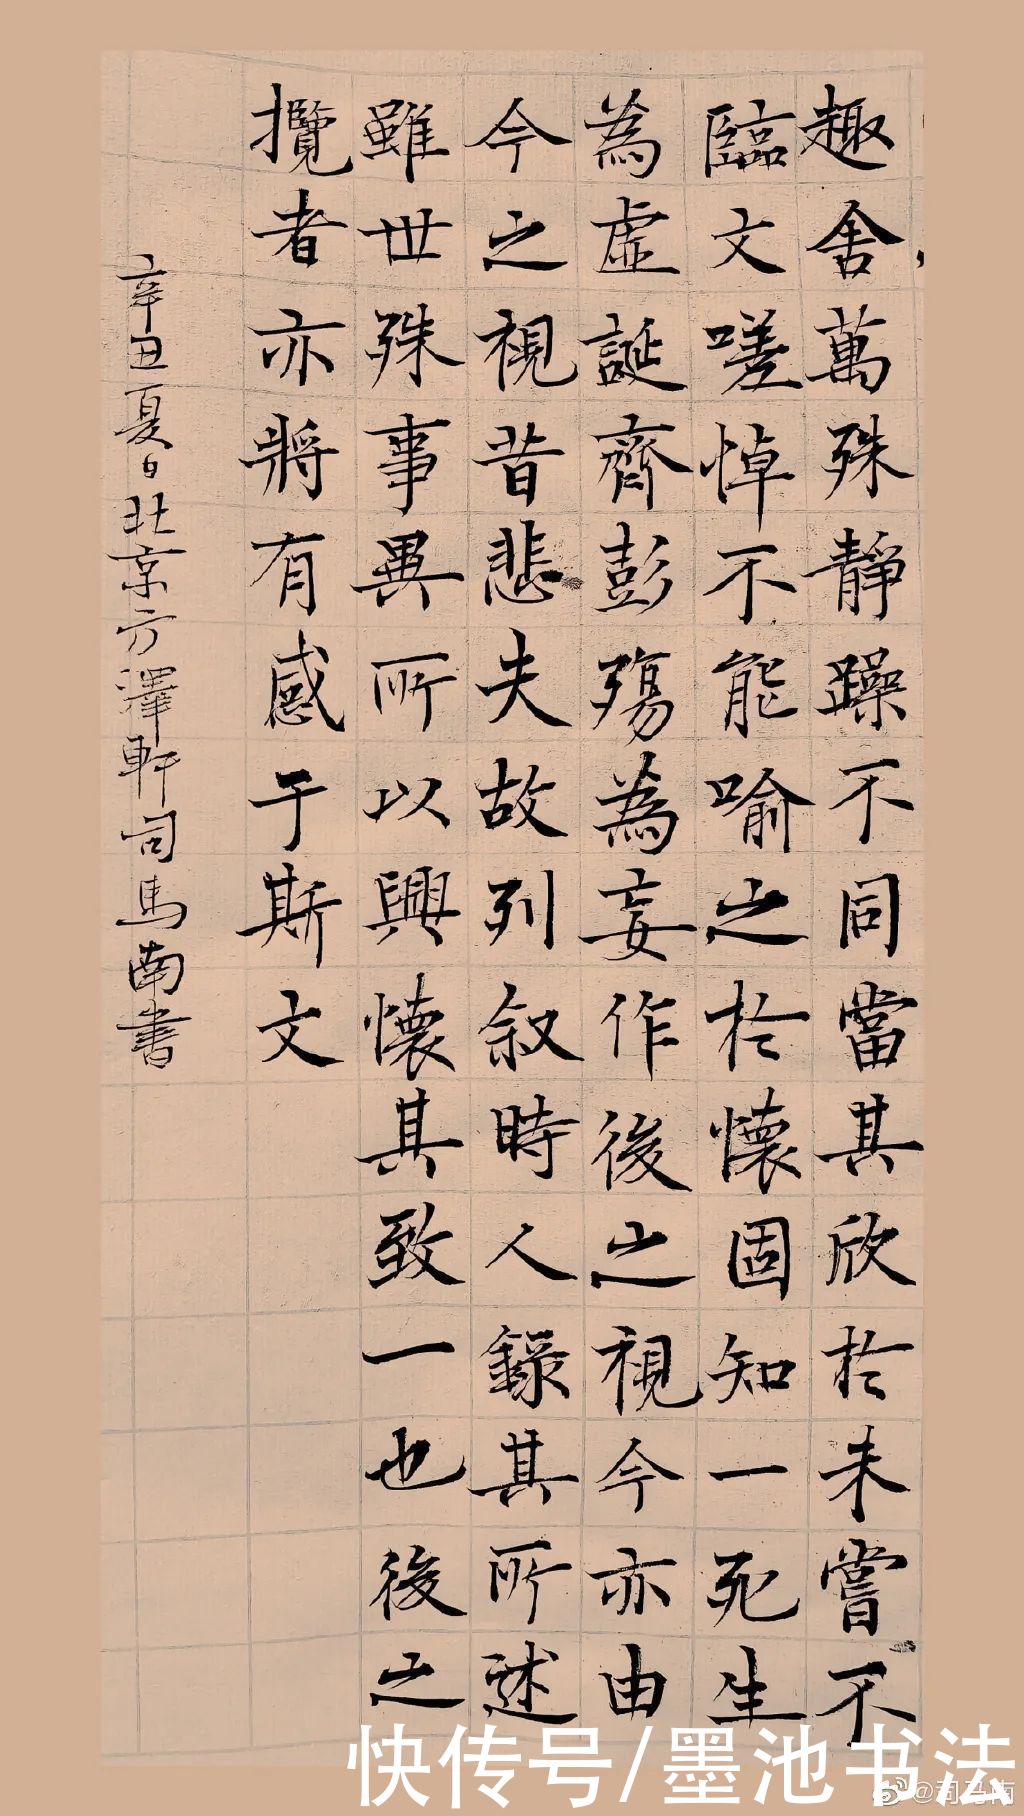 趣舍萬殊靜躁不同當其欣於未嘗不
臨文嗟悼不能喻之於懷固知一死生
為虛誕齊彭殤為妄作後之視今亦由
今之視昔悲夫故列叙時人錄其所述
雖世殊事異所以興懷其致一也後之
攬者亦將有感于斯文
辛丑夏日北京方澤軒司馬南書
快传号/墨池书法
@司马南